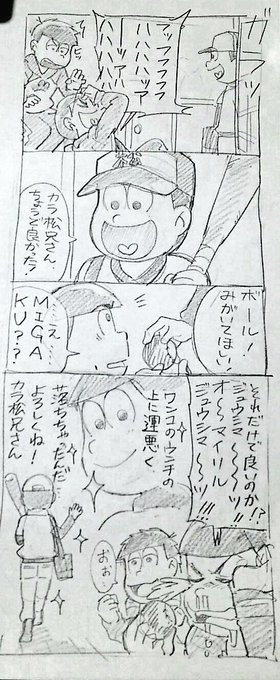 ガラッ
アッフフフフフ
ハハハハッア
ハハハッアハ
ハハハハハハ
カラ松兄さん
ちょうど良かった!
ボール!
みがいてほしい!
…え…
MIGA
KU??
それだけで良いのか!?
ジュウシマ~~~ツ!!
オ~~マイリル
ジュウシマ~~~ツ!!!
ワンコのウンチの
上に運悪く
落ちちゃったんだ…
よろしくね!
カラ松兄さん
おぉ